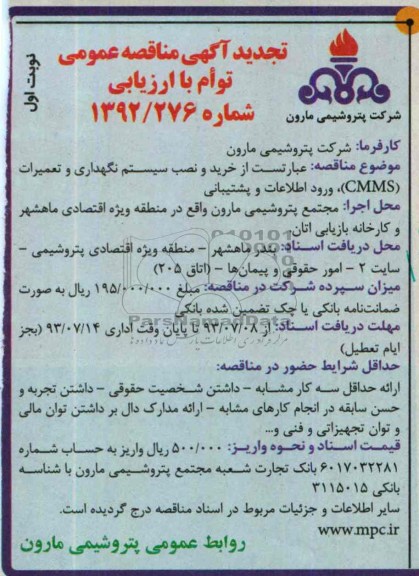 نوبت اول
تجدید آگهی مناقصه عمومی
توأم با ارزیابی
شماره ۱۳۹۲/۲۷۶
شرکت پتروشیمی مارون
کارفرما: شرکت پتروشیمی مارون
موضوع مناقصه: عبارتست از خرید و نصب سیستم نگهداری و تعمیرات
(CMMS)، ورود اطلاعات و پشتیبانی
محل اجرا: مجتمع پتروشیمی مارون واقع در منطقه ویژه اقتصادی ماهشهر
و کارخانه بازیابی اتان
محل دریافت اسناد: بندر ماهشهر – منطقه ویژه اقتصادی پتروشیمی –
سایت ۲ – امور حقوقی و پیمان‌ها – (اتاق ۲۰۵)
میزان سپرده شرکت در مناقصه: مبلغ ۱۹۵/۰۰۰/۰۰۰ ریال به صورت
ضمانت‌نامه بانکی یا چک تضمین شده بانکی
مهلت دریافت اسناد: از ۹۳/۰۷/۰۸ تا پایان وقت اداری ۹۳/۰۷/۱۴ (بجز
ایام تعطیل)
حداقل شرایط حضور در مناقصه:
ارائه حداقل سه کار مشابه – داشتن شخصیت حقوقی – داشتن تجربه و
حسن سابقه در انجام کارهای مشابه – ارائه مدارک دال بر داشتن توان مالی
و توان تجهیزاتی و فنی و...
قیمت اسناد و نحوه واریز: ۵۰۰/۰۰۰ ریال واریز به حساب شماره
۶۰۱۷۰۳۲۲۸۱ بانک تجارت شعبه مجتمع پتروشیمی مارون با شناسه
بانکی ۳۱۱۵۰۱۵
سایر اطلاعات و جزئیات مربوط در اسناد مناقصه درج گردیده است.
www.mpc.ir
روابط عمومی پتروشیمی مارون